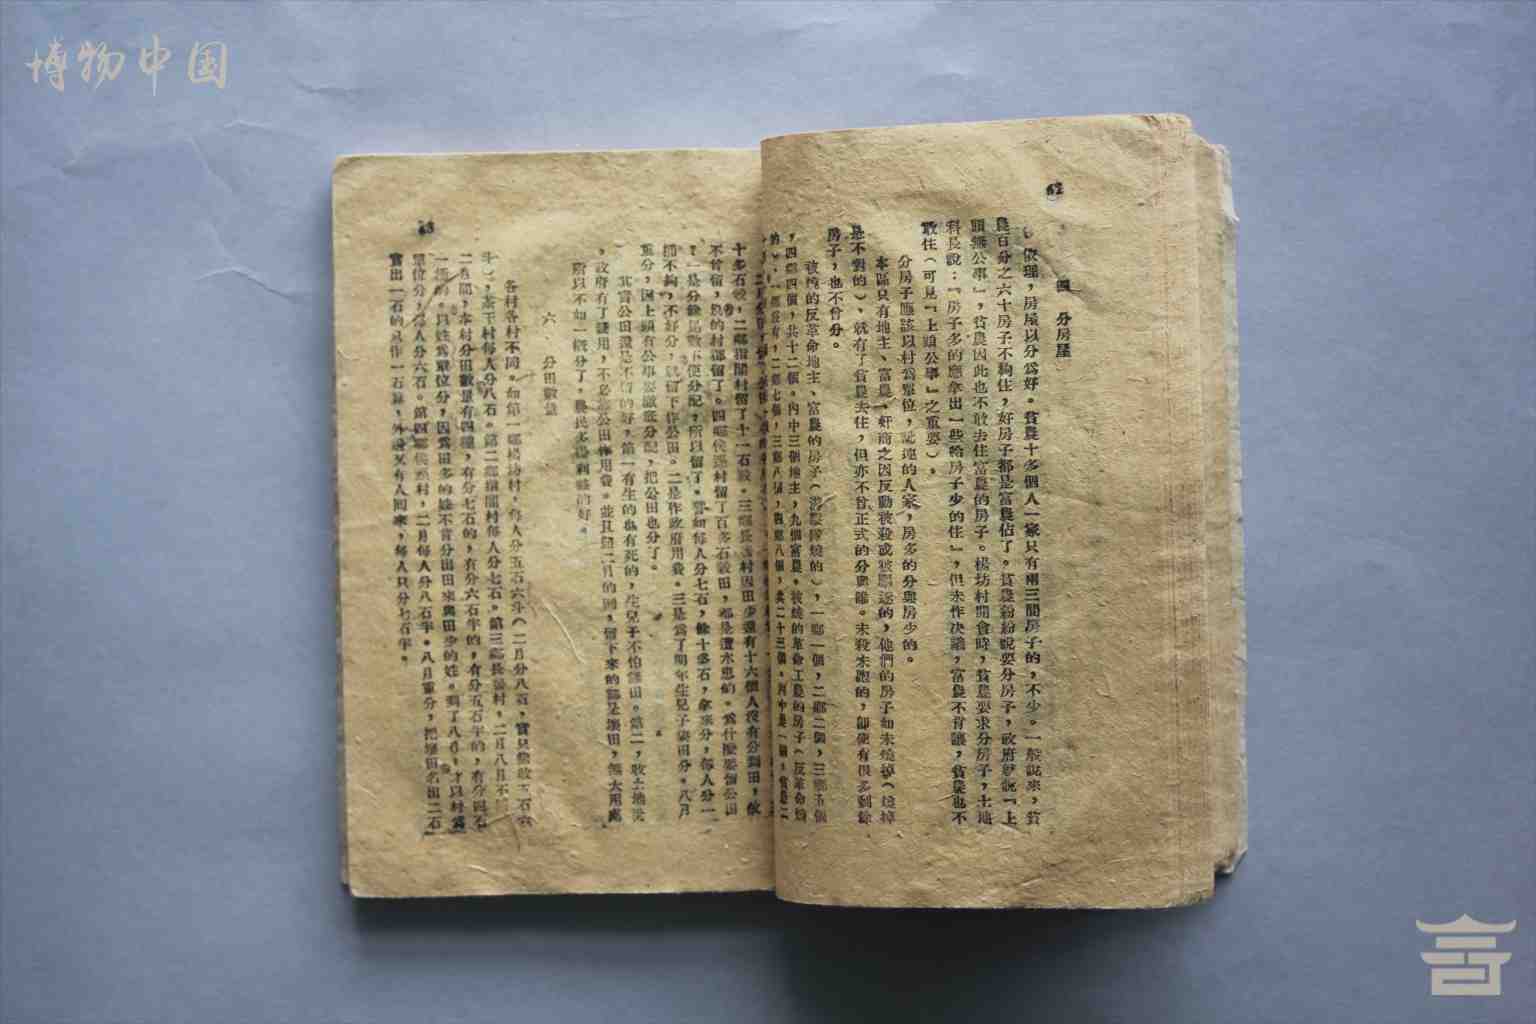 博物中国
62
四　分房屋
依理，房屋以分為好。貧農十多個人一家只有兩三間房子的，不少。一般說來，貧
農百分之六十房子不夠住，好房子都是富農佔了。貧農紛紛說要分房子，政府卻說『上
頭無公事』，貧農因此也不敢去住富農的房子。楊坊村開會時，貧農要求分房子，土地
科長說：『房子多的應拿出一些給房子少的住』，但未作决議，富農不肯讓，貧農也不
敢住（可見『上頭公事』之重要）。
分房子應該以村為單位，就連的人家，房多的分與房少的。
本區只有地主、富農、奸商之因反動被殺或被驅逐的，他們的房子如未燒掉（燒掉
是不對的），就有了貧農去住，但亦不曾正式的分與誰。未殺未跑的，即使有很多剩餘
房子，也不曾分。
被燒的反革命地主、富農的房子（游擊隊燒的），一鄉一個，二鄉二個，三鄉五個
，四鄉四個，共十二個。內中三個地主，九個富農。被燒的革命工農的房子（反革命燒
的），一鄉沒有，二鄉七個，三鄉八個，四鄉八個，共二十三個。
十多石穀，二鄉猪間村留了十一石穀。三鄉長 村因田少還有十六個人沒有分到田，故
不曾留，別的村都留了。四鄉侯逕村留了百多石穀田，都是遭水患的。為什麼要留公田
？一是分餘尾數不便分配，所以留了。譬如每人分七石，餘十多石，拿來分，每人分一
桶不夠，不好分，就留下作公田。二是作政府用費。三是為了明年生兒子要田分。八月
重分，因上頭有公事要徹底分配，把公田也分了。
其實公田還是不留的好，第一有生的也有死的，生兒子不怕無田。第二，收土地稅
，政府有了錢用，不必 公田作用費。並且 二月的 ，留下來的都是壞田，無大用處
，所以不如一概分了，農民多得利益的好。
六　分田數量
各村各村不同。如第一鄉楊坊村，每人分五石六斗（二月分八石，實只能收五石六
斗），茶干村每人分八石。第二鄉猪間村每人分七石。第三鄉長 村，二月八月不
一樣的。只姓為單位分，因為田多的姓不肯分出田來與田少的姓。到了八月，才以村為
單位分，每人分六石。第四鄉侯逕村，二月每人分八石半。八月重分，把壞田名出二石
實出一石的只作一石算，外邊又有人回來，每人只分七石半。
63